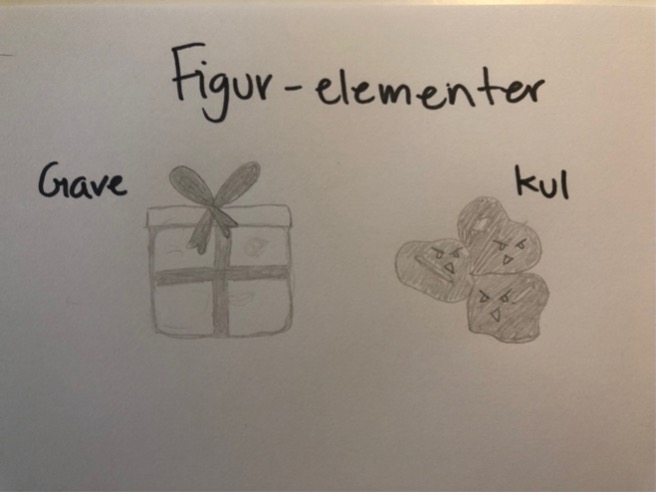 Figur-elementer
Gave
Kul